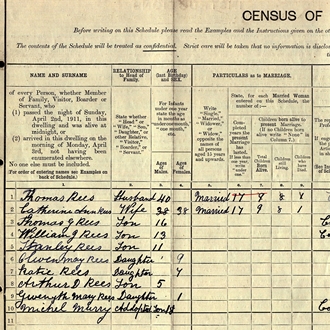 CENSUS OF
Before writing on this Schedule please read the Examples and the Instructions given on the ot
The contents of the Schedule will be treated as confidential. Strict care will be taken that no information is disclo
NAME AND SURNAME
RELATIONSHIP
to Head of
Family.
AGE
(last Birthday)
and SEX.
PARTICULARS as to MARRIAGE.
of every Person, whether Member
of Family, Visitor, Boarder or
Servant, who
(1) passed the night of Sunday,
April 2nd, 1911, in this
dwelling and was alive at
midnight, or
(2) arrived in this dwelling on the
morning of Monday, April
3rd, not having been
enumerated elsewhere.
No one else must be included.
(For order of entering names see Examples on
back of Schedule.)
State whether
"Head," or
"Wife," "Son,"
"Daughter," or
other Relative,
"Visitor,"
"Boarder," or
"Servant."
For Infants under
one year state
the age in months
Ages
of
Males.
Ages
of
Females.
Write
"Single,"
"Married,"
"Widower,"
or "Widow,"
opposite the
names of all
persons aged
15 years and
upwards.
State, for each Married Woman
entered on this Schedule, the
number of:—
Completed
years the
present
Marriage
has lasted.
Children born alive to
present Marriage.
(If no children born
alive write "None").
Total
Children
Born
Alive.
Children
still
Living.
Children
who have
Died.
1 Thomas Rees Husband 40 Married
2 Catherine Ann Rees Wife 38 Married 17 9 8 1
3 Thomas J Rees Son 16
4 William J Rees Son 13
5 Stanley Rees Son 11
6 Olwen May Rees Daughter 9
7 Katie Rees Daughter 7
8 Arthur D Rees Son 5
9 Gwenyth May Rees Daughter 1
10 Michel Murry Adopted Son
11